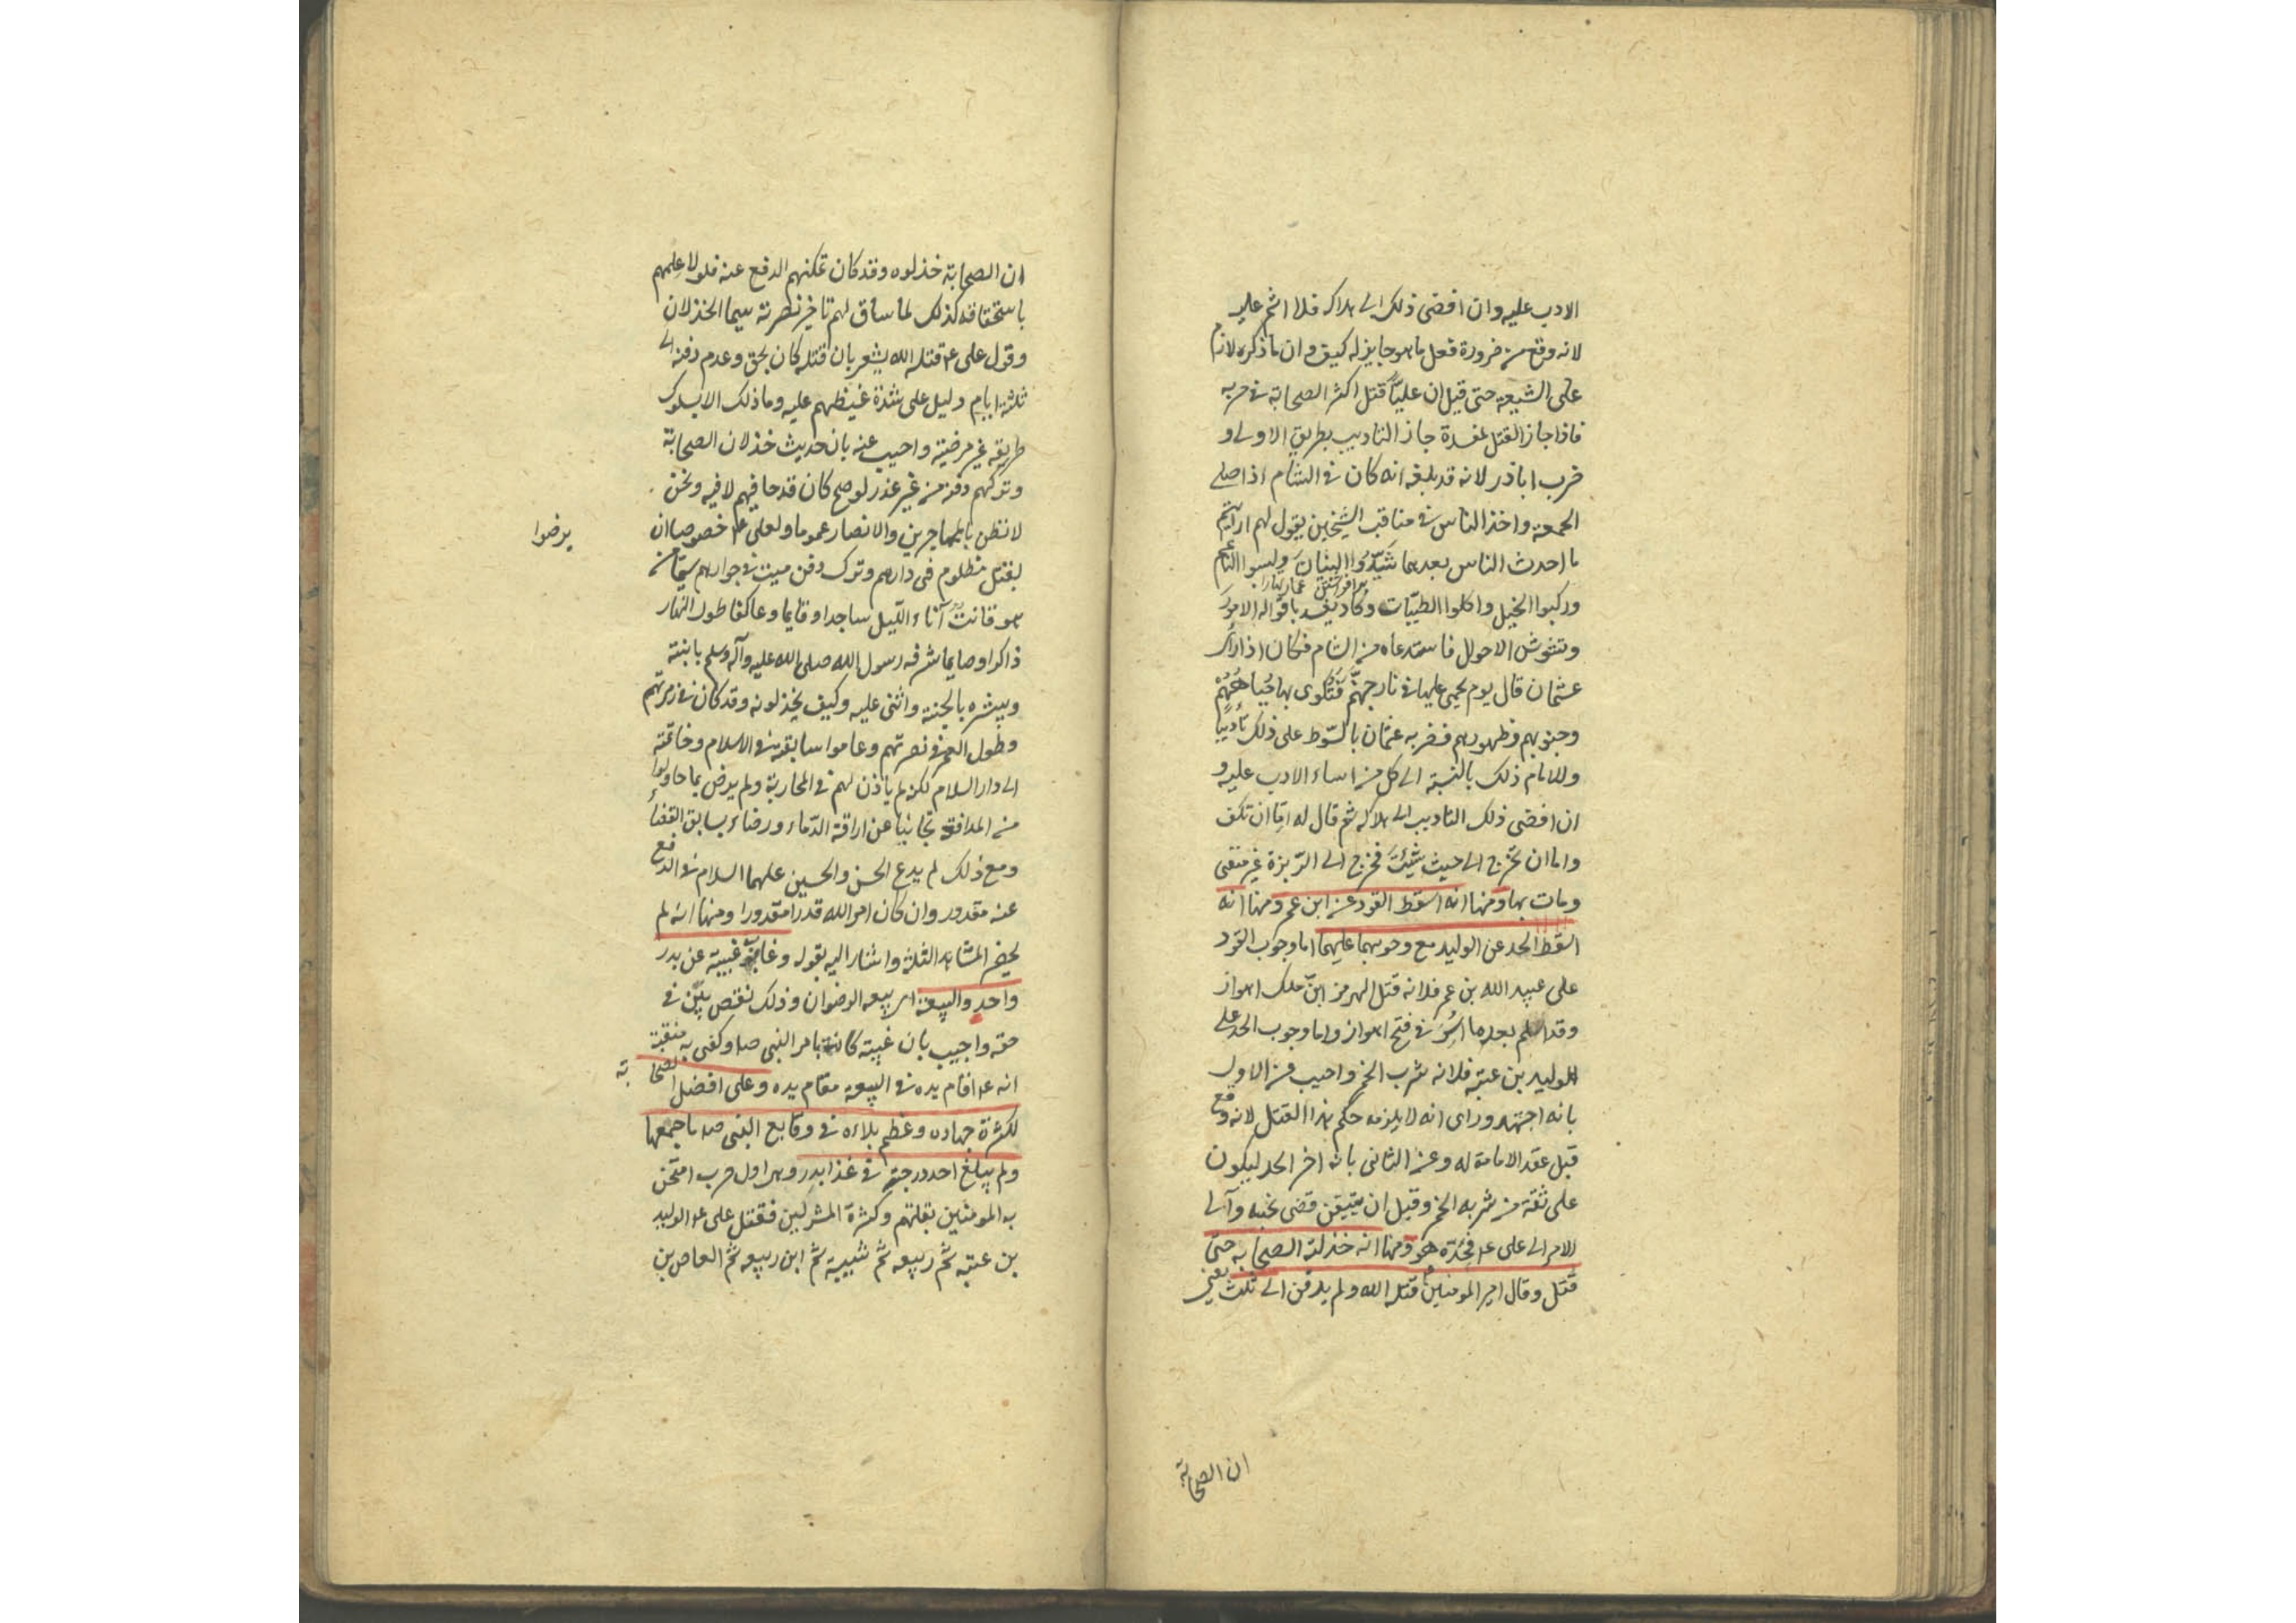 الادب عليه وان افضى ذلك الى هلاكه فلا اثم عليه
لانه وقع من ضرورة فعل ما هو جايز له كيف وان ما ذكره لازم
على الشيعة حتى قيل ان عليّاً قتل اكثر الصحابة في حربه
فاذا جاز القتل لمفسدة جاز التاديب بطريق الاولى و
ضرب اباذر لانه قد بلغه انه كان في الشام اذا صلى
الجمعة واخذ الناس في مناقب الشيخين يقول لهم ارايتم
ما احدث الناس بعدهما شَيّدُوا البنيان ولبسوا الناعم
وركبوا الخيل واكلوا الطيّبات وكاد يفسد باقواله الامور
وتشوش الاحوال فاستدعاه من الشام فكان اذا راى
عثمان قال يوم يحمى عليها في نار جهنّم فتكوى بها جباههم
وجنوبهم وظهورهم فضربه عثمان بالسّوط على ذلك تاديبا
وللامام ذلك بالنسبة الى كل من اساء الادب عليه و
ان افضى ذلك التاديب الى هلاكه ثم قال له امّا ان تكف
واما ان تخرج الى حيث شِئتَ فخرج الى الرّبزة غير منفى
ومات بها ومنها انه اسقط القود عن ابن عمر ومنها انه
اسقط الحد عن الوليد مع وجوبهما عليهما اما وجوب القود
على عبيد الله بن عمر فلانه قتل الهرمزان ملك اهواز
وقد اسلم بعد ما اُسِر في فتح اهواز واما وجوب الحد على
الوليد بن عتبة فلانه شرب الخمر واجيب من الاول
بانه اجتهد وراى انه لا يلزمه حكم هذا القتل لانه وقع
قبل عقد الامامة له وعن الثانى بانه اخر الحد ليكون
على ثقة من شربه الخمر وقبل ان يتيقن قضى نحبه وآل
الامر الى على عم فحدّه هو ومنها انه خذلته الصحابه حتى
قُتل وقال امير المومنين قتله الله ولم يدفن الى ثلث يعنى
ان الصحابة
ان الصحابة خذلوه وقد كان تمكنهم الدفع عنه فلولا علمهم
باستحقاقه كذلك لما ساق لهم تاخير نصرته سيما الخذلان
وقول على عم قتله الله يشعر بان قتله كان بحق وعدم دفنه الى
ثلثة ايام دليل على شدة غيظهم عليه وما ذلك الا بسلوك
طريقة غير مرضية واجيب عنه بان حديث خذلان الصحابة
وتركهم دفنه من غير عذر لو صح كان قدحا فيهم لا فيه ونحن
لا نظن بالمهاجرين والانصار عموما ولعلى عم خصوصا ان
يرضوا
لقتل مظلوم فى دارهم وترك دفن ميت في جوارهم سيما من
هو قانت آناء اللّيل ساجدا وقايما وعاكفا طول النهار
ذاكرا وصايما شرفه رسول الله صلى الله عليه وآله وسلم بابنته
ويبشره بالجنة واثنى عليه وكيف يخذلونه وقد كان في زمرتهم
وطول العمر في نصرتهم وعلموا سابقته في الاسلام وخاتمته
الى دار السلام لكنه لم ياذن لهم في المحاربة ولم يرض بما حاولوا
من المدافعة تجانبا عن اراقة الدّماء ورضاء بسابق القضاء
ومع ذلك لم يدع الحسن والحسين عليهما السلام في الدفع
عنه مقدور وان كان امر الله قدرا مقدورا ومنها انه لم
يحضر المشاهد الثلثة واشار اليه بقوله وغاب غيبته عن بدر
واحد والبيعة اى بيعه الرضوان وذلك نقص بيّن في
حقه واجيب بان غيبته كانت بامر النبى صلم وكفى به منقبة
انه عم اقام يده في البيعه مقام يده وعلى افضل الصحابة
لكثرة جهاده وعظم بلاءه في وقايع النبى صلم باجمعها
ولم يبلغ احد درجته في غزا بدر وهى اول حرب امتحن
به المومنين بقلتهم وكثرة المشركين فقتل على عم الوليد
بن عتبه ثم ربيعه ثم شيبة ثم ابن ربيعه ثم العاص بن